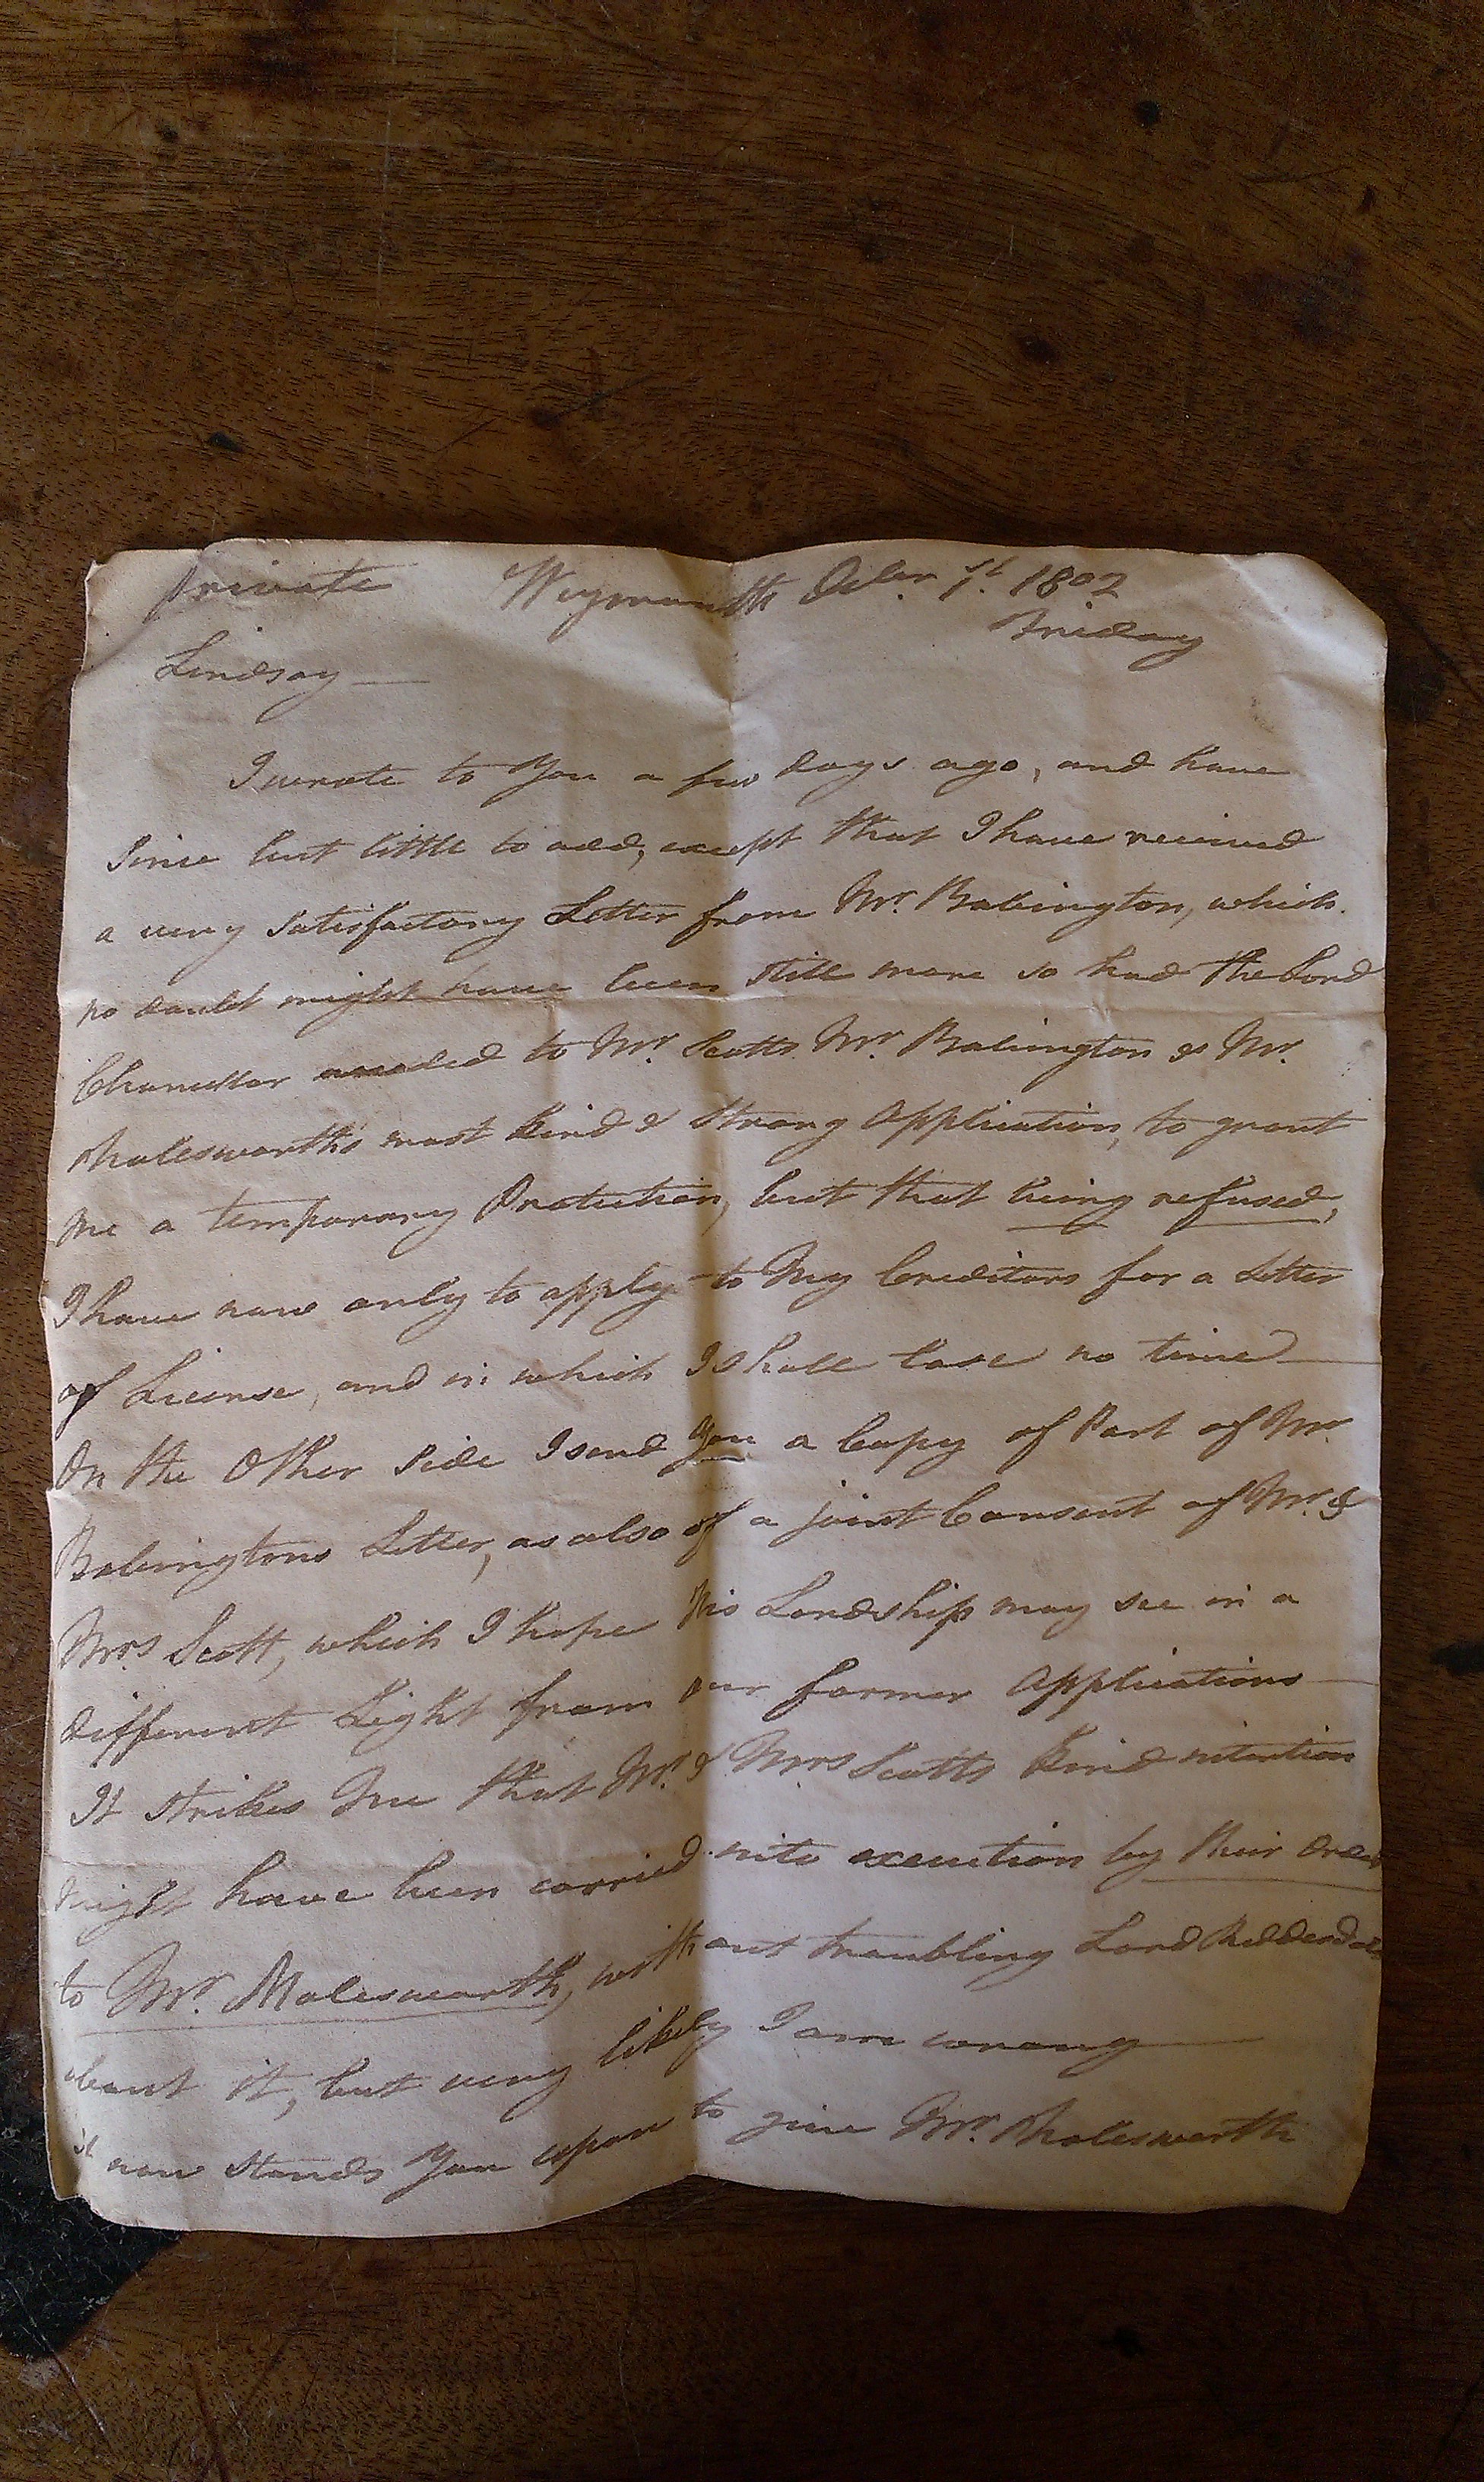 Private Weymouth Octbr. 1st. 1802
Friday
Lindsay —
I wrote to You a few days ago, and have
since but little to add, except that I have received
a very satisfactory Letter from Mr. Babington, which
no doubt might have been still more so had the Lord
Chancellor acceded to Mr. Scotts Mr. Babington & Mr.
Molesworths most kind & strong Application, to grant
Me a temporary Protection, but that being refused,
I have now only to apply to My Creditors for a Letter
of License, and in which I shall lose no time —
On the Other side I send You a Copy of Part of Mr.
Babingtons Letter, as also of a joint Consent of Mr. &
Mrs. Scott, which I hope his Lordship may see in a
different Light from our former Applications —
It strikes Me that Mr. & Mrs Scotts kind intention
might have been carried into execution by their Order
to Mr. Molesworth, without troubling Lord Reddesdale
about it, but very likely I am wrong —
it now stands You upon to give Mr. Molesworth